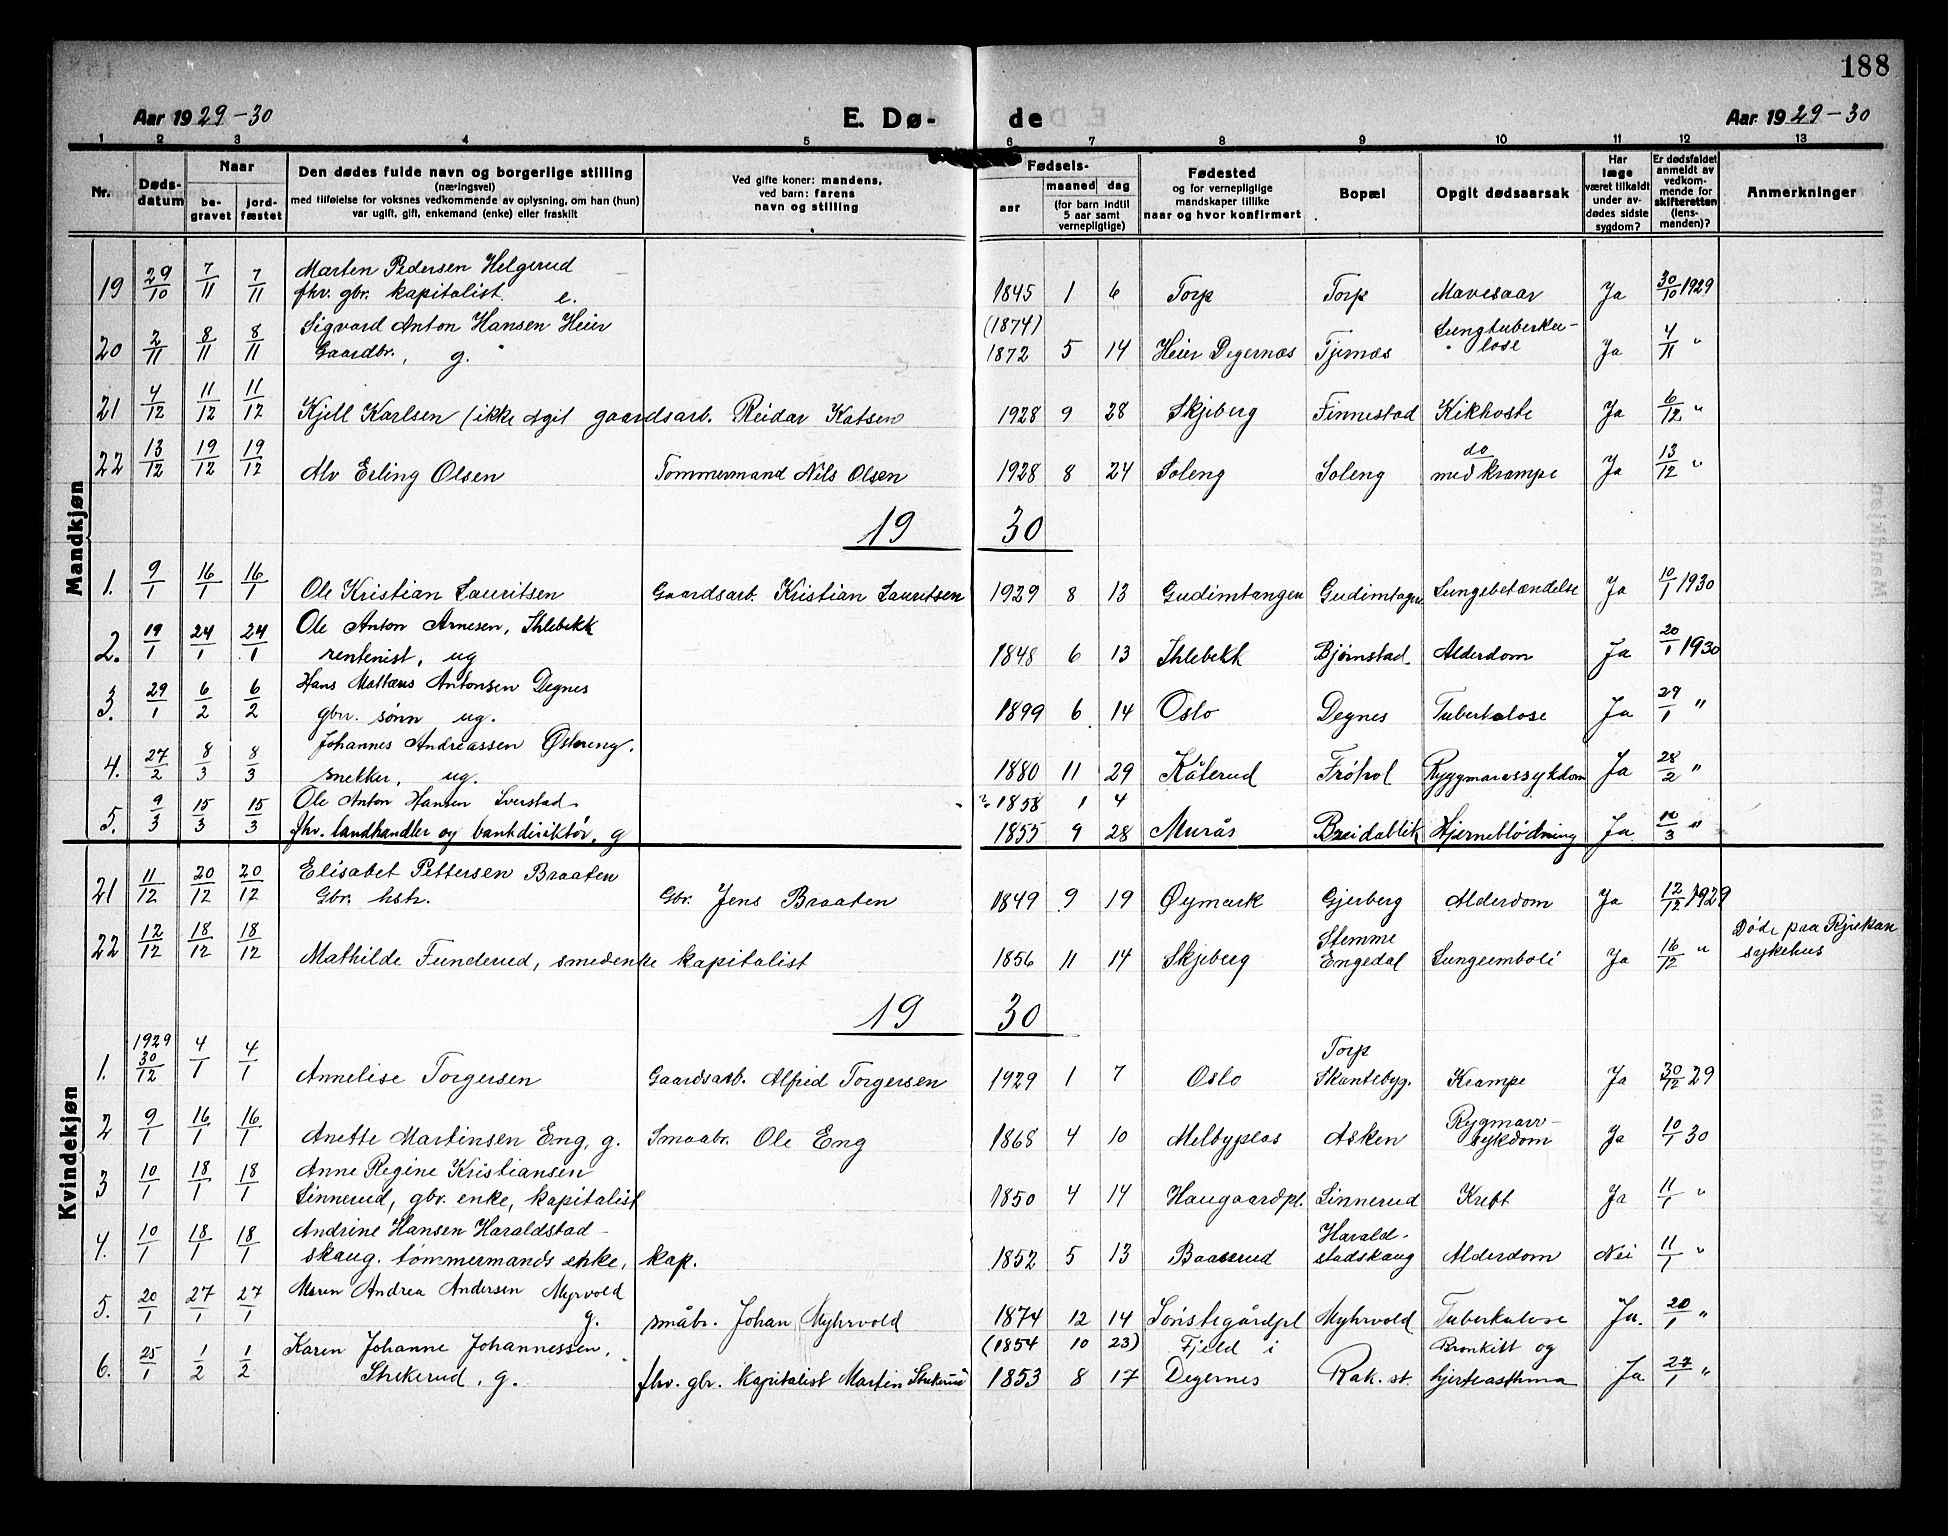 188
Aar 1929-30 E. Dø- de Aar 1929-30
1 2 3 4 5 6 7 8 9 10 11 12 13
Nr.
Døds-
datum
Naar
be-
gravet
jord-
fæstet
Den dødes fulde navn og borgerlige stilling
(næringsvei)
med tilføielse for voksnes vedkommende av oplysning, om han (hun)
var ugift, gift, enkemand (enke) eller fraskilt
Ved gifte koner: mandens,
ved barn: farens
navn og stilling
Fødsels-
aar
maaned
dag
(for barn indtil
5 aar samt
vernepligtige)
Fødested
og for vernepligtige
mandskaper tillike
naar og hvor konfirmert
Bopæl
Opgit dødsaarsak
Har
læge
været tilkaldt
under av-
dødes sidste
sygdom?
Er dødsfaldet
anmeldt av
vedkom-
mende for
skifteretten
(lens-
manden)?
Anmerkninger
Mandkjøn
Marten Pedersen Helgerud
19 29/10 7/11 7/11 fhv. gbr. kapitalist. e. 1845 1 6 Torp Torp Mavesaar Ja 30/10 1929
Sigvard Anton Hansen Heier (1874) Lungtuberku-
20 2/11 8/11 8/11 Gaardbr., g. 1872 5 14 Heier Degernæs Tjernæs lose Ja 4/11 "
21 4/12 11/12 11/12 Kjell Karlsen (ikke gaardsarb. Reidar Katsen 1928 9 28 Skjeberg Finnestad Kikhoste Ja 6/12 "
do
22 13/12 19/12 19/12 Alv Erling Olsen Tommermand Nils Olsen 1928 8 24 Soleng Soleng med krampe Ja 13/12 "
19 30
1. 9/1 16/1 16/1 Ole Kristian Lauritsen Gaardsarb. Kristian Lauritsen 1929 8 13 Gudimtangen Gudimtagen Lungebetændelse Ja 10/1 1930
Ole Anton Arnesen, Ihlebekk
2. 19/1 24/1 24/1 rentenist, ug 1848 6 13 Ihlebekk Bjørnstad Alderdom Ja 20/1 1930
Hans Mattæus Antonsen Degnes
3. 29/1 6/2 6/2 gbr. sønn ug. 1899 6 14 Oslo Degnes Tuberkolose Ja 29/1 "
Johannes Andreassen Østreng.
4. 27/2 8/3 8/3 snekker, ug. 1880 11 29 Kåterud Frøhol Ryggmarvssykdom Ja 28/2 "
Ole Anton Hansen Sverstad ? 1858 1 4
5. 9/3 15/3 15/3 fhv. landhandler og bankdirektør, g 1855 9 28 Murås Breidablik Hjerneblødning Ja 10/3 "
Kvindekjøn
Elisabet Pettersen Braaten
21 11/12 20/12 20/12 Gbr. hstr. Gbr. Jens Braaten 1849 9 19 Øymark Gjerberg Alderdom Ja 12/12 1929
Stemme Døde paa Rjukan
22 12/12 18/12 18/12 Mathilde Funderud, smedenke kapitalist 1856 11 14 Skjeberg Engedal Lungeemboli Ja 16/12 " sykehus
19 30
1929 Torp
1. 30/12 4/1 4/1 Annelise Torgersen Gaardsarb. Alfred Torgersen 1929 1 7 Oslo Skantebyg. Krampe Ja 30/12 29
Rygmarv-
2 9/1 16/1 16/1 Anette Martinsen Eng, g. Smaabr. Ole Eng 1868 4 10 Melbyplas Asken sykdom Ja 10/1 30
Anne Regine Kristiansen
3 10/1 18/1 18/1 Linnerud, gbr. enke, kapitalist 1850 4 14 Haugaardpl. Linnerud Kreft Ja 11/1 "
Andrine Hansen Haraldstad- Harald-
4. 10/1 18/1 18/1 skaug. tømmermands enke, kap. 1852 5 13 Baaserud stadskaug Alderdom Nei 11/1 "
Maren Andrea Andersen Myrvold
5. 20/1 27/1 27/1 g. småbr. Johan Myhrvold 1874 12 14 Sønstegårdpl Myhrvold Tuberkulose Ja. 20/1 "
Karen Johanne Johannessen, (1854 10 23) Fjeld i Bronkitt og
6. 25/1 1/2 1/2 Strekerud, g. fhv. gbr. kapitalist Martin Strekerud 1853 8 17 Degernes Rak. st. hjerteasthma Ja 27/1 "